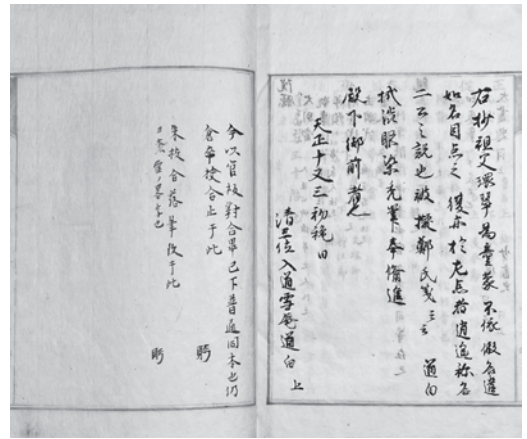 右抄祖父環翠為童蒙不依假名違
如名目点之後亦於左点者逍遥祢名
二公之説也被擬鄭氏箋云々 道白
拭渋眼染禿筆奉備進
殿下御前者也
天正十又三初穐日
清三位入道雪庵道白 上
今以官板對合畢已下普通同本也仍
舍弟挍合止于此
朱挍合落筆改于此